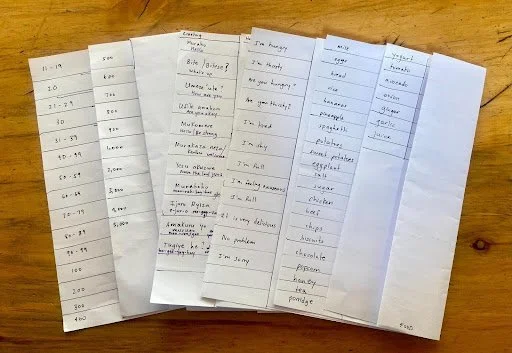 11 - 19
20
21 - 29
30
31 - 39
40 - 49
50 - 59
60 - 69
70 - 79
80 - 89
90 - 99
100
200
300
400
500
600
700
800
900
1,000
2,000
3,000
4,000
5,000
Greeting
Muraho
Hello
Bite / Bitese?
What's up
Umeze ute?
How are you
Mukomere
Be strong
Murakaza neza
Welcome
Murabeho
Ijoro Ryiza
Amakuru yo
I'm hungry
I'm thirsty
Are you hungry?
Are you thirsty?
I'm tired
I'm shy
I'm full
I'm feeling
I'm full
It is very delicious
No problem
I'm sorry
milk
eggs
bread
rice
bananas
pineapple
spaghetti
potatoes
sweet potatoes
eggplant
salt
sugar
chicken
beef
chips
biscuits
chocolate
popcorn
honey
tea
porridge
yogurt
tomato
avocado
onion
ginger
garlic
juice
FOOD